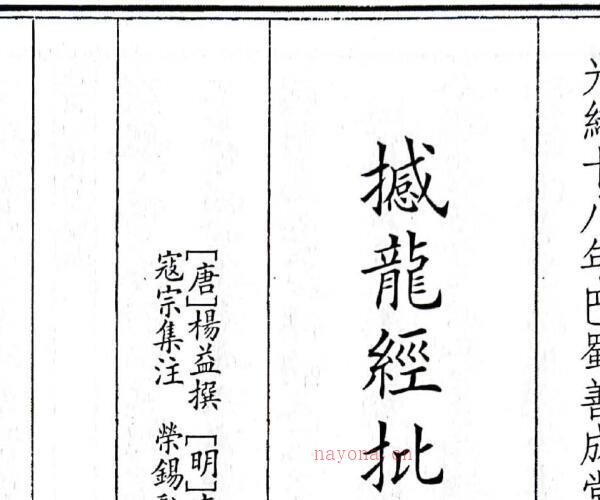 光緒十八年巴蜀善成堂
撼龍經批
[唐]楊益撰 [明]
寇宗集注 榮錫
nayona.cn